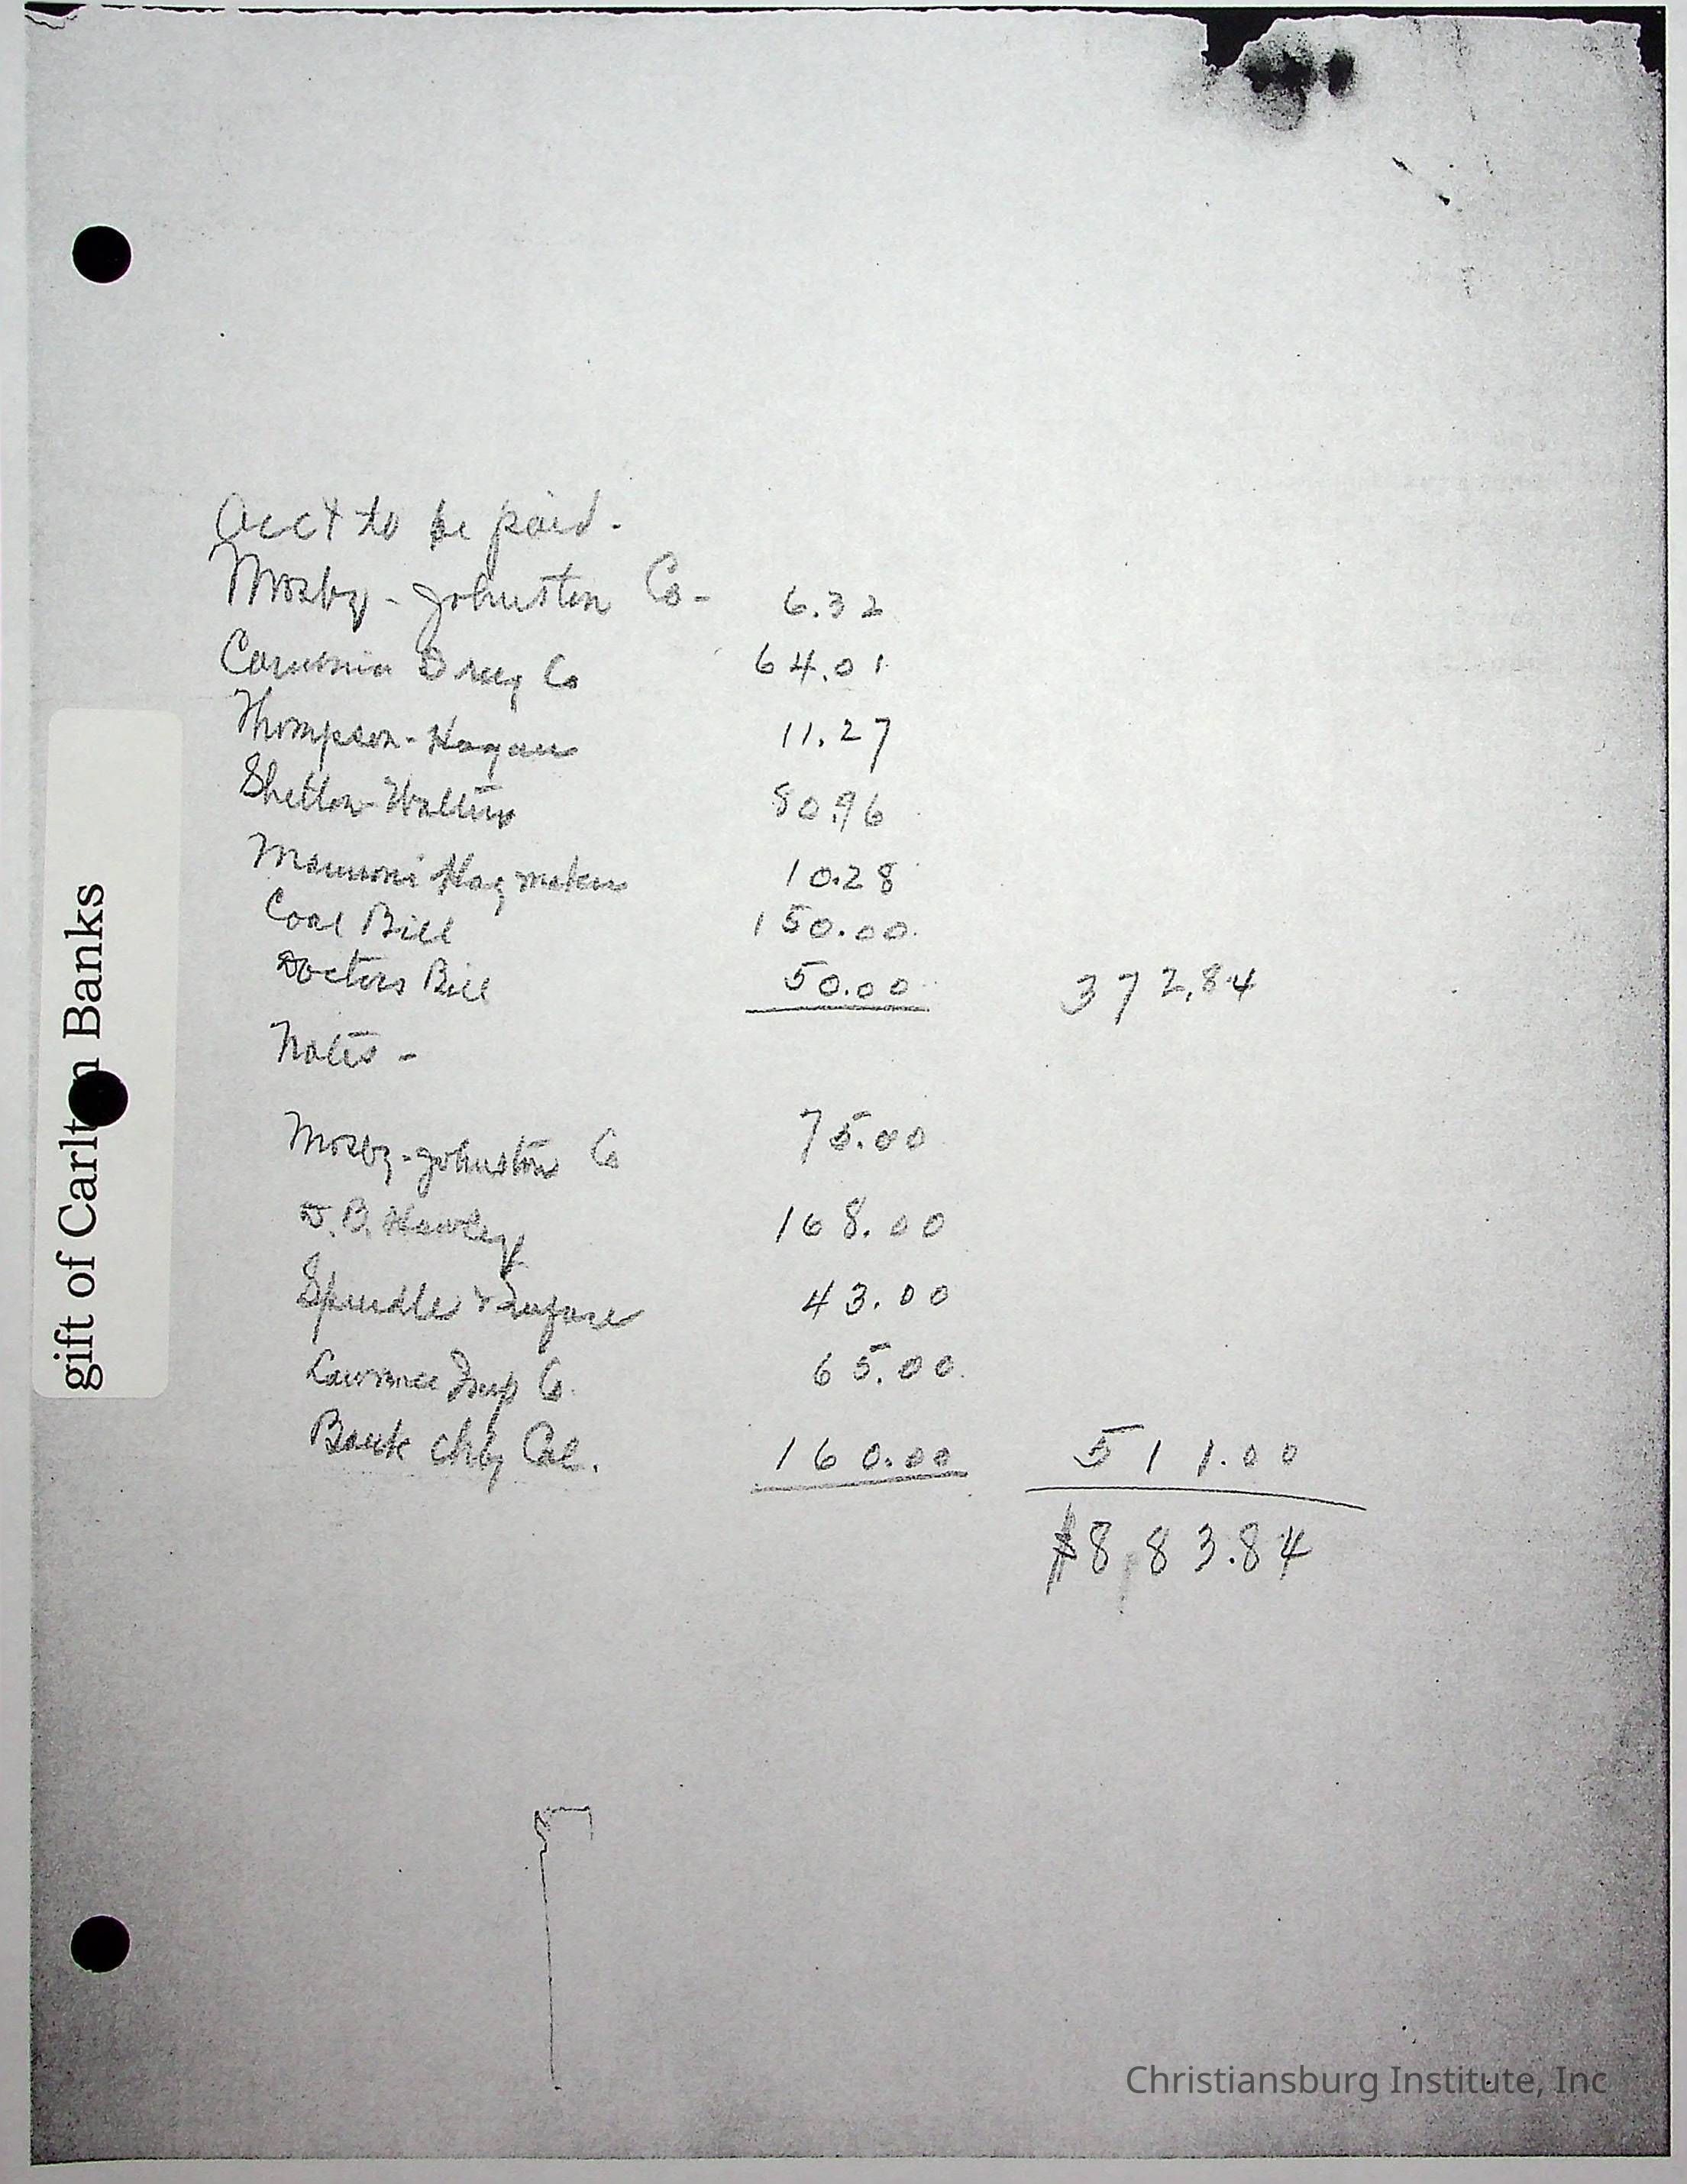 Acct to be paid.
Mosby - Johnston Co - 6.32
Drug Co 64.01
Thompson - Hagan 11.27
Shelton - Walters 80.96
10.28
Coal Bill 150.00
Doctors Bill 50.00 372.84
Notes -
Mosby - Johnston Co 75.00
B. Hawley 168.00
Spindle & 43.00
Lawrence Imp Co. 65.00
Bank chg Cal. 160.00 511.00
$883.84
gift of Carlton Banks
Christiansburg Institute, Inc